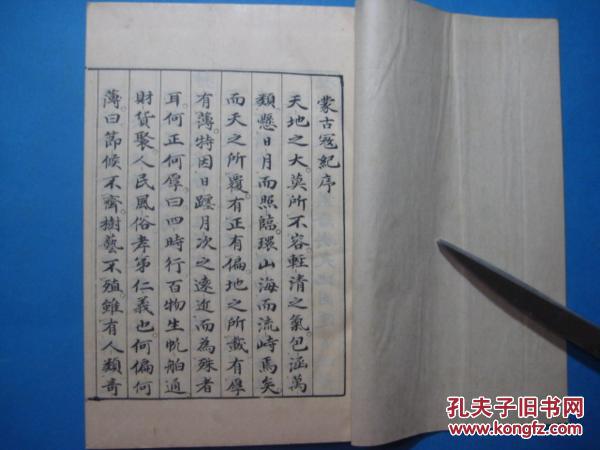 蒙古寇紀序
天地之大莫所不容輕清之氣包涵萬
類懸日月而照臨環山海而流峙焉矣
而天之所覆有正有偏地之所載有厚
有薄特因日躔月次之遠近而為殊者
耳何正何厚曰四時行百物生帆舶通
財貨聚人民風俗孝弟仁義也何偏何
薄曰節候不齊樹藝不殖雖有人類奇
孔夫子旧书网
www.kongfz.com